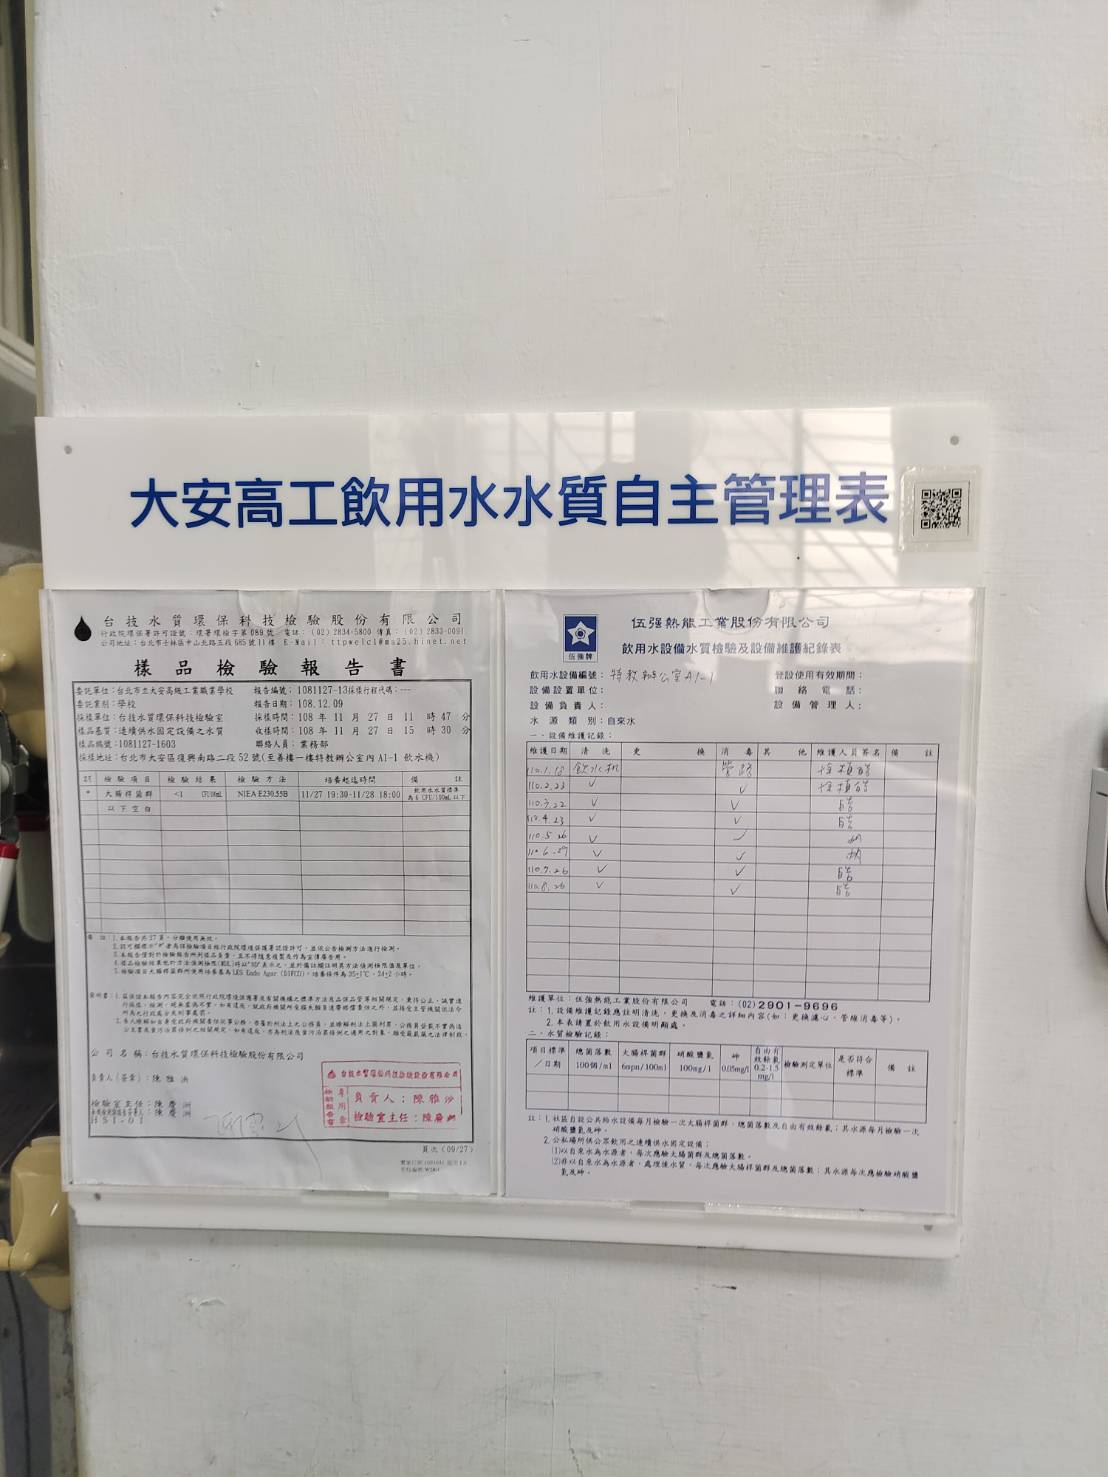 大安高工飲用水水質自主管理表
台技水質環保科技檢驗股份有限公司
行政院環保署許可證號：環署環檢字第089號 電話：(02)2834-5800 傳真：(02)2833-0091
公司地址：台北市士林區中山北路五段685號11樓 E-Mail：ttpwelcl@ms25.hinet.net
樣品檢驗報告書
委託單位：台北市立大安高級工業職業學校 報告編號：1081127-13採樣行程代碼：---
委託業別：學校 報告日期：108.12.09
採樣單位：台技水質環保科技檢驗室 採樣時間：108 年 11 月 27 日 11 時 47 分
樣品基質：連續供水固定設備之水質 收樣時間：108 年 11 月 27 日 15 時 30 分
樣品編號：1081127-1603 聯絡人員：業務部
採樣地址：台北市大安區復興南路二段 52 號(至善樓一樓特教辦公室內 A1-1 飲水機)
註 檢驗項目 檢驗結果 檢驗方法 培養起迄時間 備註
* 大腸桿菌群 <1 NIEA E230.55B 11/27 19:30-11/28 18:00 飲用水水質標準為6 CFU/100mL以下
以下空白
公司名稱：台技水質環保科技檢驗股份有限公司
負責人(簽章)：陳雅汝
檢驗室主任：陳慶洲
台技水質環保科技檢驗股份有限公司
檢驗報告專用章
負責人：陳雅汝
檢驗室主任：陳慶洲
頁次(09/27)
伍強牌
伍強熱能工業股份有限公司
飲用水設備水質檢驗及設備維護紀錄表
飲用水設備編號：特教辦公室A1-1 登設使用有效期間：
設備設置單位： 聯絡電話：
設備負責人： 設備管理人：
水源類別：自來水
一．設備維護記錄：
維護日期 清洗 更換 消毒 其他 維護人員簽名 備註
110.1.18 飲水机 管路
110.2.23 ✓ ✓
110.3.22 ✓ ✓
110.4.23 ✓ ✓
110.5.26 ✓ ✓
110.6.29 ✓ ✓
110.7.26 ✓ ✓
110.8.26 ✓ ✓
維護單位：伍強熱能工業股份有限公司 電話：(02)2901-9696
註：1.設備維護記錄應註明清洗，更換及消毒之詳細內容(如：更換濾心、管線消毒等)。
2.本表請置於飲用水設備明顯處。
二．水質檢驗記錄：
項目標準/日期 總菌落數100個/ml 大腸桿菌群6mpn/100ml 硝酸鹽氮100mg/l 砷0.05mg/l 自由有效餘氯0.2-1.5mg/l 檢驗測定單位 是否符合標準 備註
註：1.社區自設公共給水設備每月檢驗一次大腸桿菌群、總菌落數及自由有效餘氯；其水源每月檢驗一次
硝酸鹽氮及砷。
2.公私場所供公眾飲用之連續供水固定設備：
(1)以自來水為水源者，每次應驗大腸菌群及總菌落數。
(2)非以自來水為水源者，處理後水質，每次應驗大腸菌群及總菌落數；其水源每次應檢驗硝酸鹽
氮及砷。